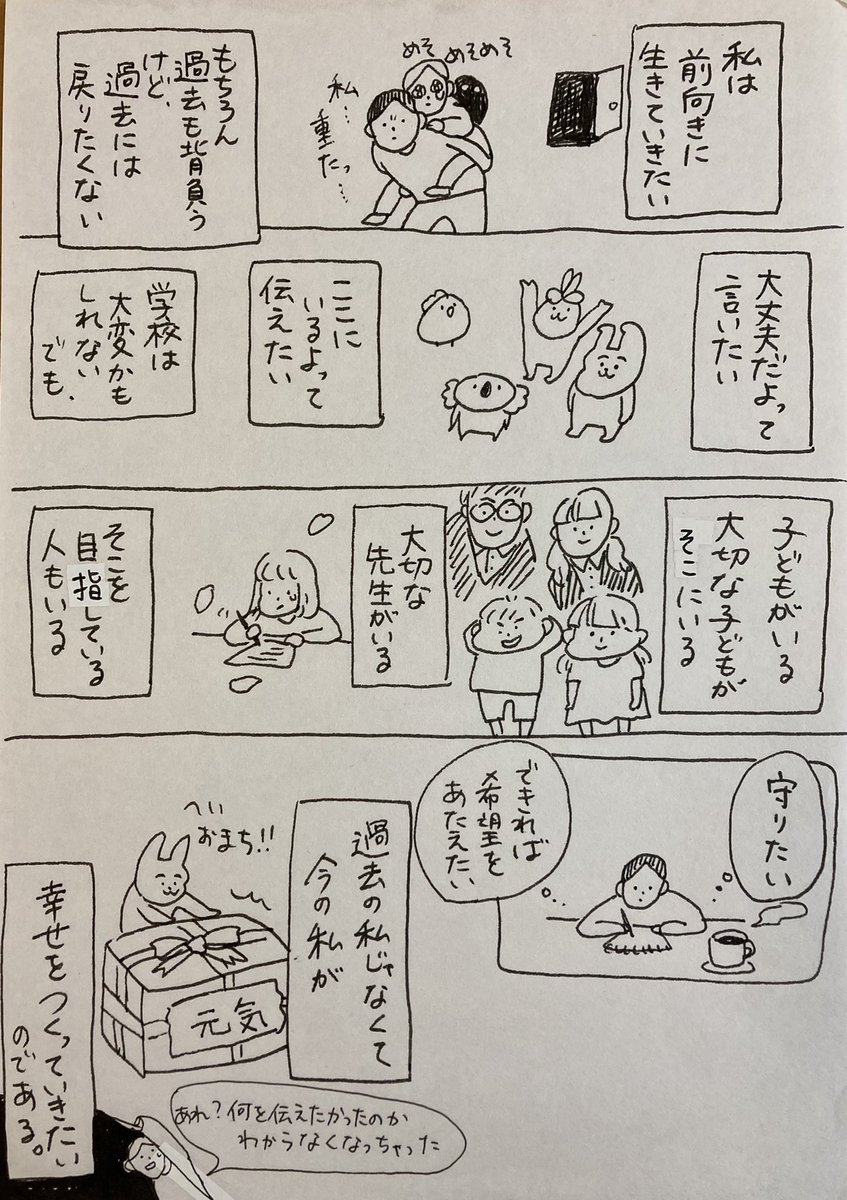 私は
前向きに
生きていきたい
めそ めそめそ
私…
重たっ…
もちろん
過去も背負う
けど、
過去には
戻りたくない
大丈夫だよって
言いたい
ここに
いるよって
伝えたい
学校は
大変かも
しれない
でも、
子どもがいる
大切な子どもが
そこにいる
大切な
先生がいる
そこを
目指している
人もいる
守りたい
できれば
希望を
あたえたい
過去の私じゃなくて
今の私が
へい
おまち!!
元気
幸せをつくっていきたい
のである。
あれ?何を伝えたかったのか
わからなくなっちゃった